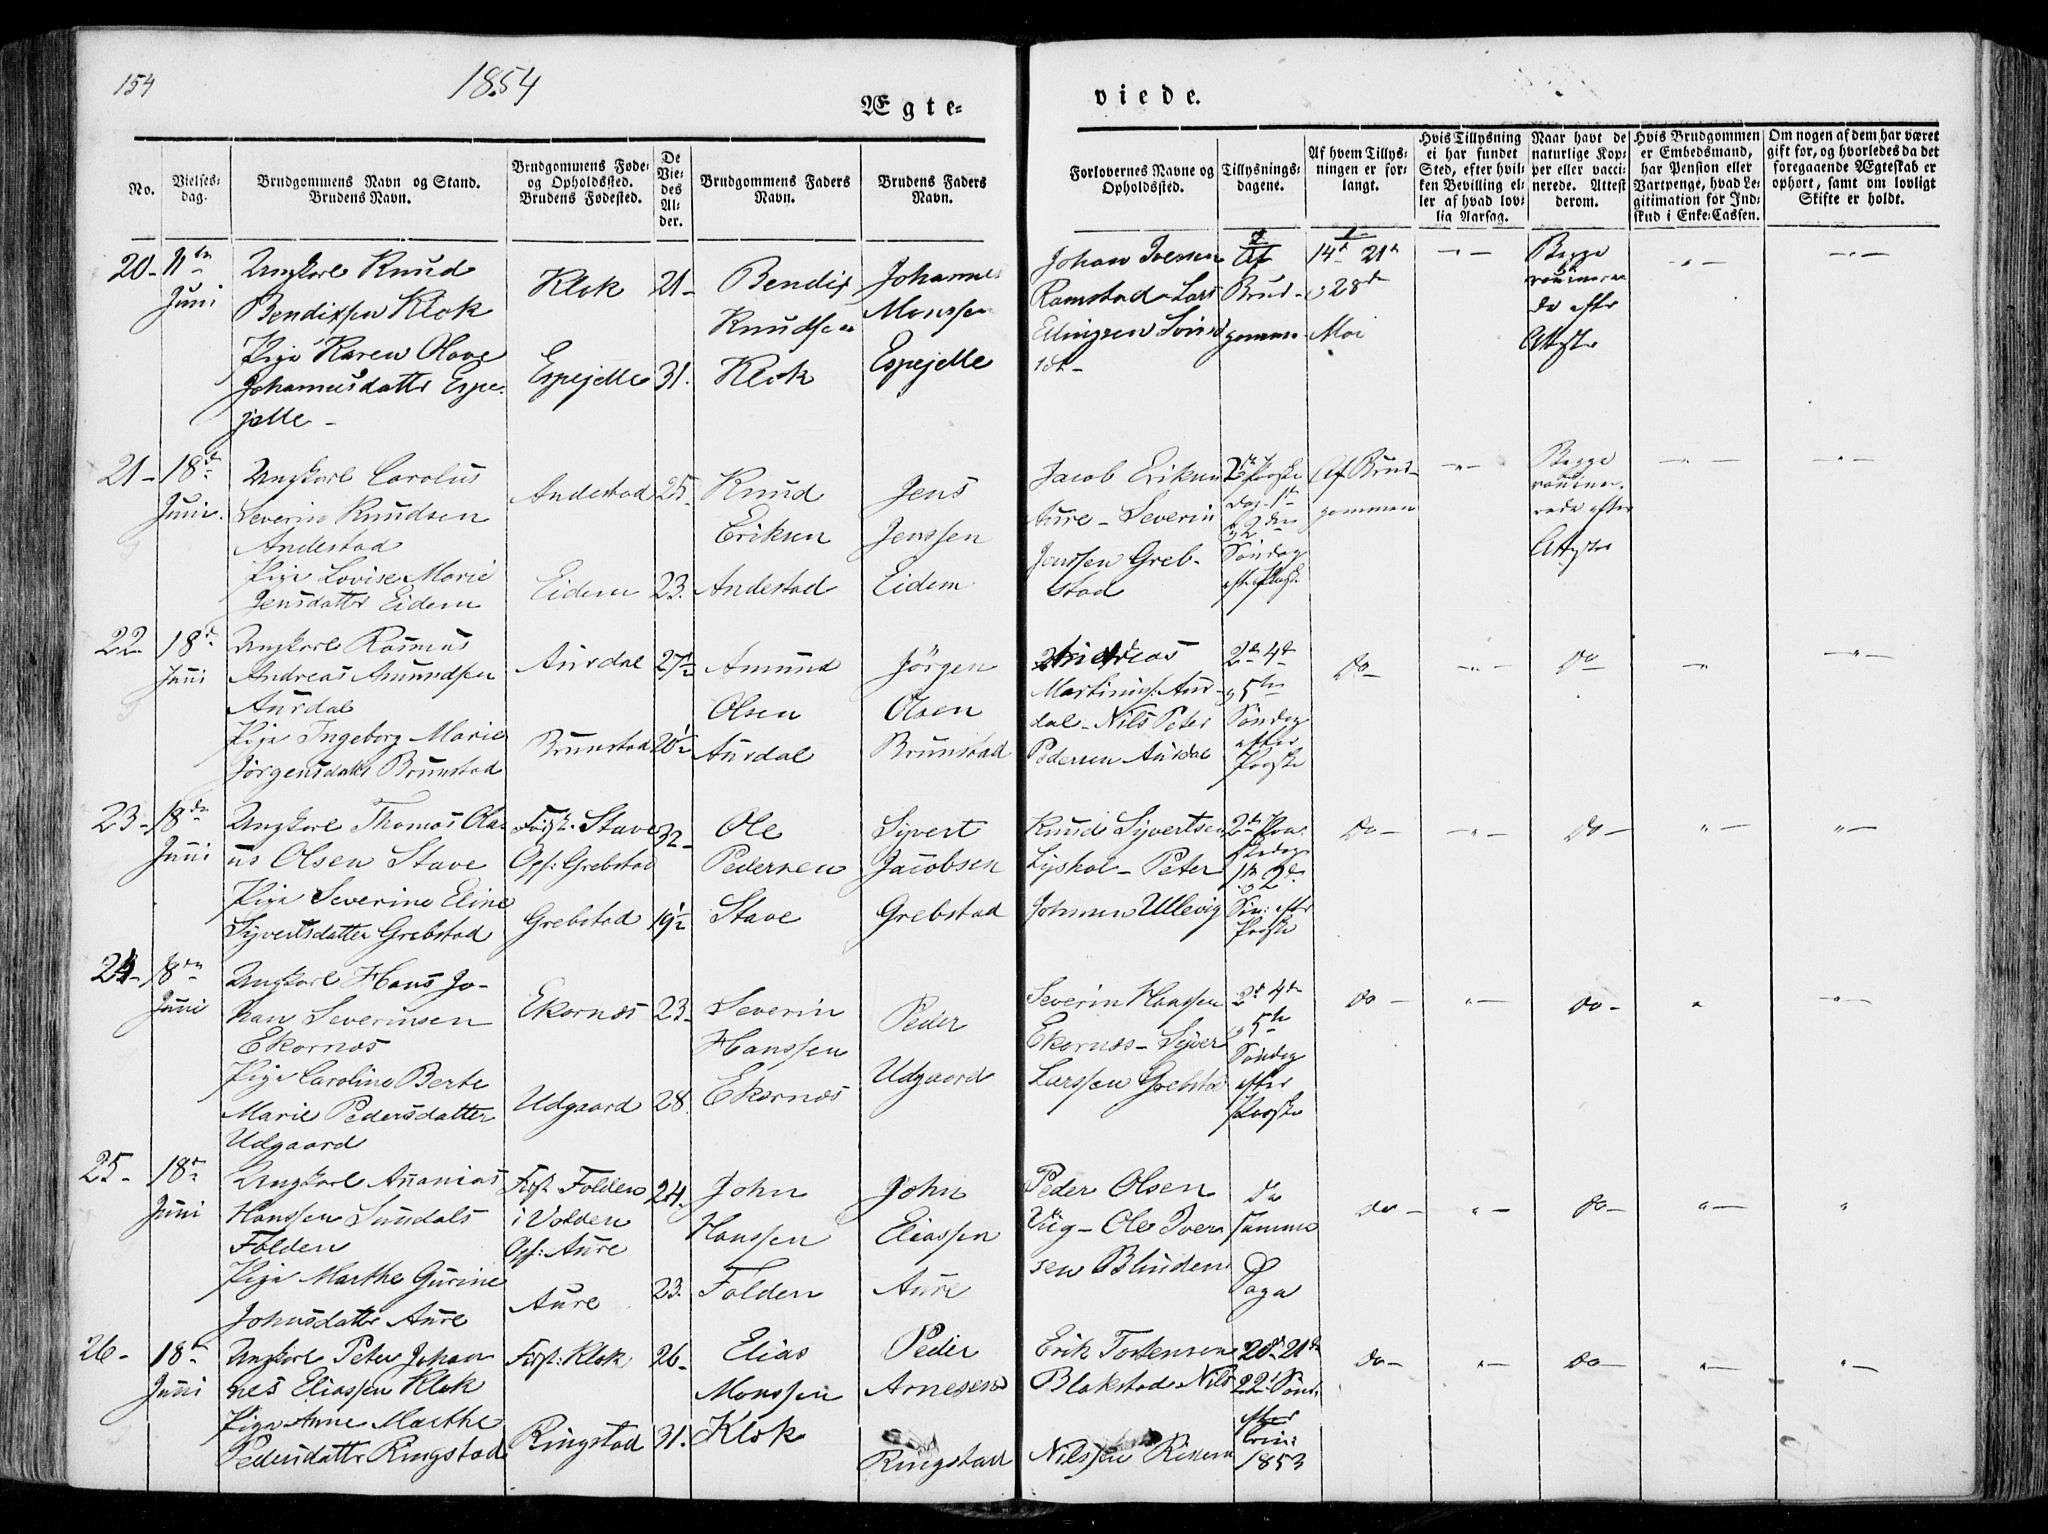 154
1854
Ægte=
viede.
No.
Vielses-
dag.
Brudgommens Navn og Stand.
Brudens Navn.
Brudgommens Føde-
og Opholdssted.
Brudens Fødested.
De
Vie-
des
Al-
der.
Brudgommens Faders
Navn.
Brudens Faders
Navn.
Forlovernes Navne og
Opholdssted.
Tillysnings-
dagene.
Af hvem Tillys-
ningen er for-
langt.
Hvis Tillysning
ei har fundet
Sted, efter hvil-
ken Bevilling el-
ler af hvad lov-
lig Aarsag.
Naar havt de
naturlige Kop-
per eller vacci-
nerede. Attest
derom.
Hvis Brudgommen
er Embedsmand,
har Pension eller
Vartpenge, hvad Le-
gitimation for Ind-
skud i Enke-Cassen.
Om nogen af dem har været
gift før, og hvorledes da det
foregaaende Ægteskab er
ophørt, samt om lovligt
Skifte er holdt.
20-
11te
Juni
Ungkarl Knud
Bendixsen Klok
Pige Karen Olave
Johannesdatter Espe-
jelle -
Klok
Espejelle
21-
31.
Bendix
Knudsen
Klok
Johannes
Monssen
Espejelle
Johan Iversen
Ramstad - Lars
Af
Brud-
gommen
14de 21de
og 28de
Mai
Begge
vaccinere-
de efter
Attester
21-
18de
Juni
Ungkarl Carolus
Severin Knudsen
Andestad
Pige Lovise Marie
Jensdatter Eidem
Andestad
Eidem
25
23.
Knud
Eriksen
Andestad
Jens
Jenssen
Eidem
Jacob Eriksen
Aure - Severin
Jenssen Greb-
stad
2den Paaske
dag 1ste
og 2den
Søndag
eft. Paaske
Af Brud-
gommen
Begge
vaccine-
rede efter
Attester
22-
18de
Juni
Ungkarl Rasmus
Andreas Amundsen
Aurdal
Pige Ingeborg Marie
Jörgensdatter Brunstad
Aurdal
Brunstad
27½
20½
Amund
Olsen
Aurdal
Jörgen
Olsen
Brunstad
Andreas
Martinus: Aur-
dal - Nils Peter
Pedersen Aurdal
2de 4de
og 5te
Søndag
efter
Paaske
Do -
Do
23-
18de
Juni
Ungkarl Thomas Ola-
us Olsen Stave
Pige Severine Eline
Syvertsdatter Grebstad
Født: Stave
Oph: Grebstad
Grebstad
32-
19½
Ole
Pedersen
Stave
Syvert
Jacobsen
Grebstad
Knud Syvertsen
Lyskol - Peter
Johnsen Ullevig
2den Paa-
skedag
1ste og 2de
Søn: efter
Paaske
Do -
Do -
24-
18de
Juni
Ungkarl Hans Jo-
han Severinsen
Ekornæs
Pige Caroline Berte
Marie Pedersdatter
Udgaard
Ekornæs
Udgaard
23-
28
Severin
Hanssen
Ekornæs
Peder
Udgaard
Severin Hanssen
Ekornæs - Syver
Larssen Grebstad
2de 4de
og 5te
Søndag
efter
Paaske
Do -
Do -
25-
18de
Juni
Ungkarl Ananias
Hanssen Sundals
Folden
Pige Marthe Gurine
Johnsdatter Aure
Født Folden
i Volden
Oph: Aure
Aure
24.
23.
John
Hanssen
Folden
John
Eliassen
Aure
Peder Olsen
Viig - Ole Iver-
sen Blinden
De
samme
Dage
Do -
Do -
26-
18de
Juni
Ungkarl Peter Johan-
nes Eliassen Klok
Pige Anne Marthe
Pedersdatter Ringstad
Født: Klok
Ringstad
26-
31.
Elias
Monssen
Klok
Peder
Arnesen
Ringstad
Erik Tostensen
Blakstad Nils
Nilssen
20de 21de
22de Sønd:
efter
Trin:
1853
Do -
Do -